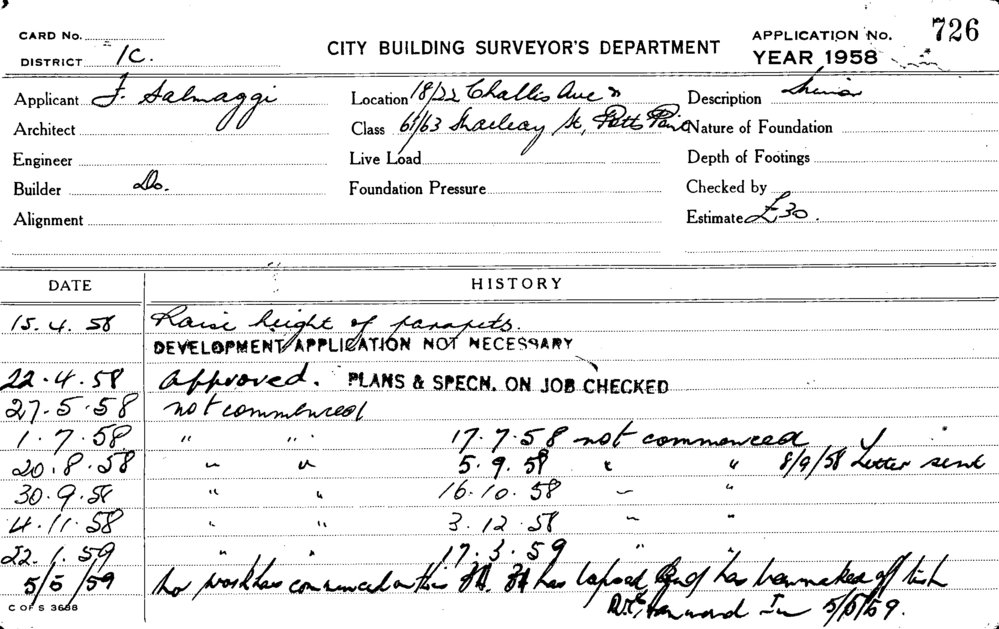 CARD No.
DISTRICT 1C.
CITY BUILDING SURVEYOR'S DEPARTMENT
APPLICATION No. 726
YEAR 1958
Applicant F. Salmaggi
Location 18/22 Challis Ave
Description Minor
Architect
Class 61/63 Macleay St, Potts Point
Nature of Foundation
Engineer
Live Load
Depth of Footings
Builder Do.
Foundation Pressure
Checked by
Alignment
Estimate £30.
DATE HISTORY
15.4.58 Raise height of parapets.
DEVELOPMENT APPLICATION NOT NECESSARY
22.4.58 Approved. PLANS & SPECN. ON JOB CHECKED
27.5.58 not commenced
1.7.58 " " 17.7.58 not commenced
20.8.58 " " 5.9.58 " " 8/9/58 Letter sent
30.9.58 " " 16.10.58 " "
4.11.58 " " 3.12.58 " "
22.1.59 " " 17.3.59 " "
5/5/59 No work has commenced on this has lapsed has been marked off
5/5/59.
C OF S 3638